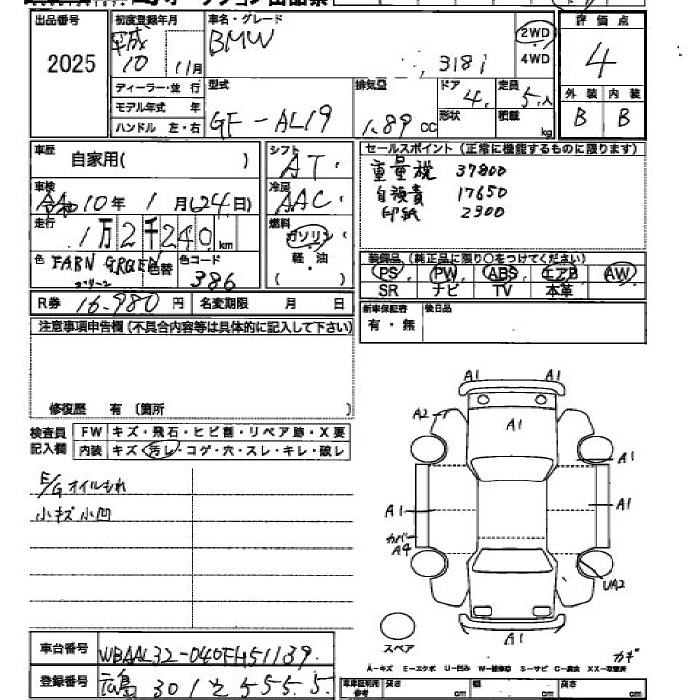 出品番号 2025
初度登録年月 平成 10 11月
車名・グレード BMW 318i
2WD 4WD
評価点 4
外装 内装
B B
ディーラー・並行
モデル年式 年
ハンドル 左・右
型式 GF-AL19
排気量 1.89 CC
ドア 4
形状
定員 5人
積載 kg
車歴 自家用( )
シフト AT
車検 令和10年 1月(24日)
冷房 AAC
走行 1万2千240km
燃料 ガソリン 軽・油 ( )
色 FARN GREEN 色替 色コード 386
グリーン
R券 16,980円 名変期限 月 日
セールスポイント (正常に機能するものに限ります)
重量税 37800
自賠責 17650
印紙 2300
装備品 (純正品に限り○をつけてください)
PS PW ABS エアB AW
SR ナビ TV 本革
新車保証書 有・無
後日品
注意事項申告欄 (不具合内容等は具体的に記入して下さい)
修復歴 有 (箇所 )
検査員記入欄
FW キズ・飛石・ヒビ割・リペア跡・X要
内装 キズ・汚レ・コゲ・穴・スレ・キレ・破レ
E/Gオイルもれ
小キズ小凹
A1 A1
A2 A1
A1
A1 A1
カバー
A4
UA2
A1
スペア
カギ
A-キズ E-エクボ U-凹み W-補修跡 S-サビ C-腐食 XX-交換済
車台番号 WBAAL32-040FH51139
登録番号 広島 301 と 5555
車庫証明用参考 長さ cm 幅 cm 高さ cm